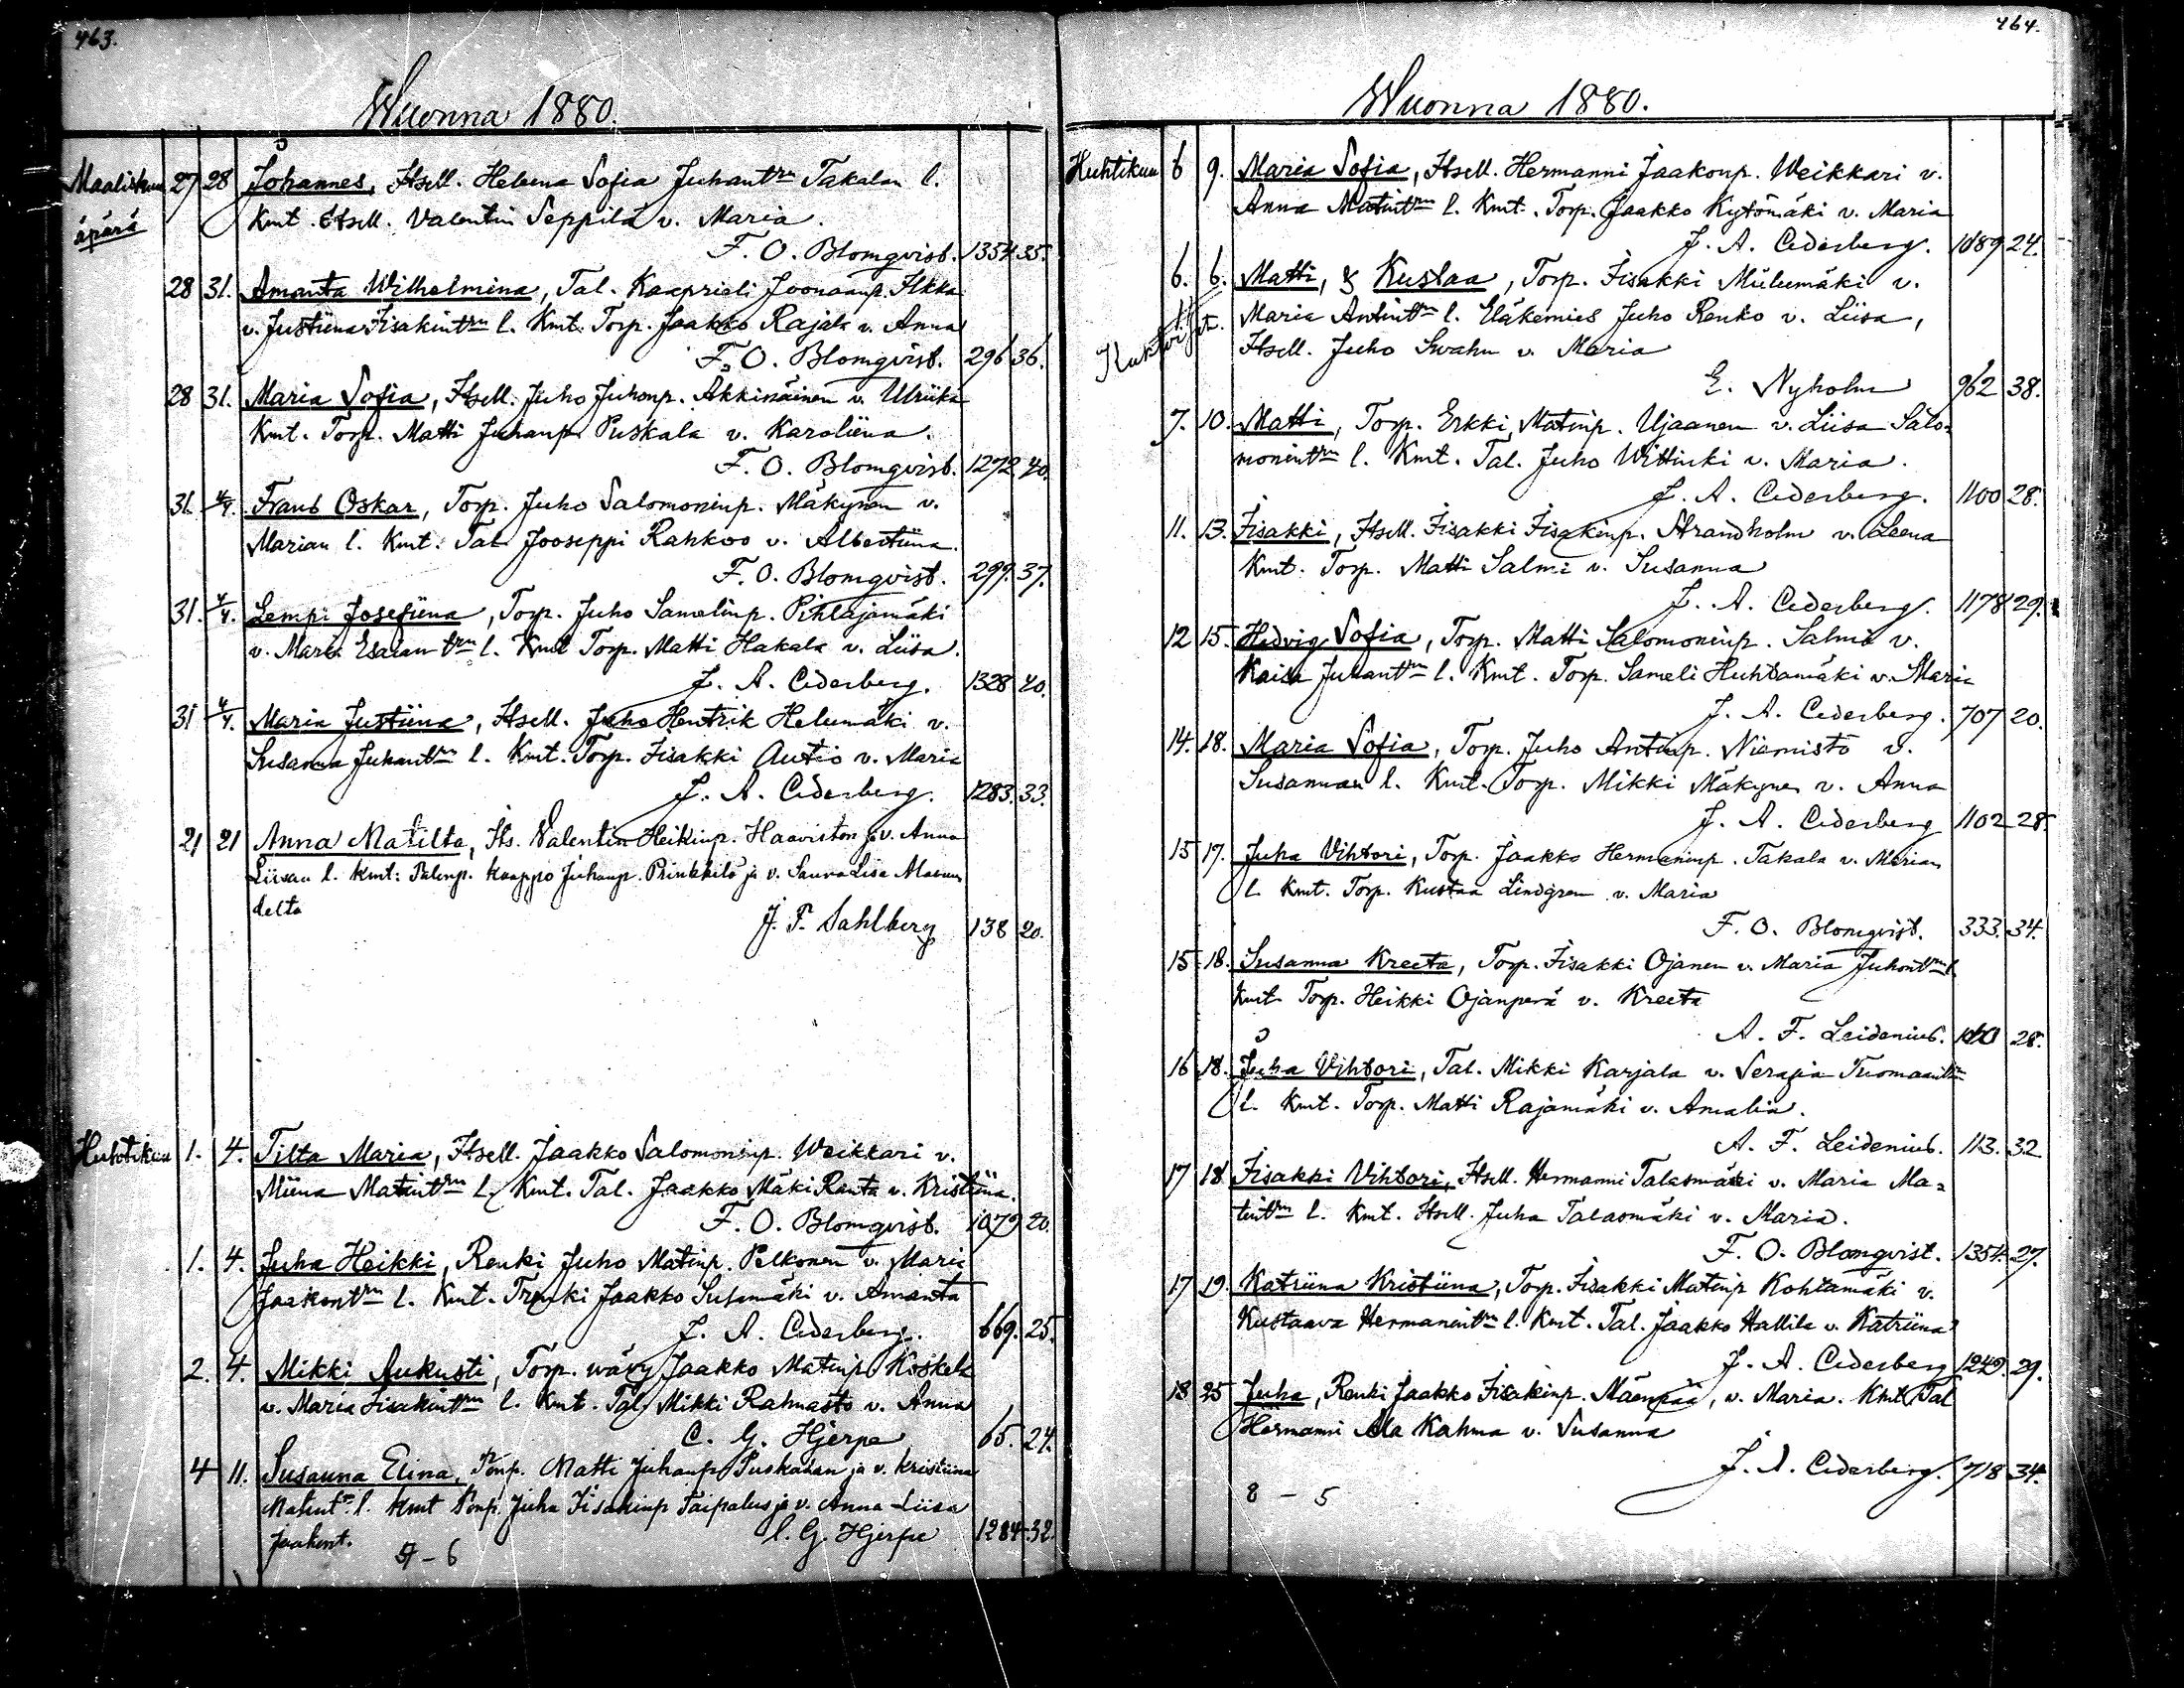 463.
Wuonna 1880.
Maaliskuu 27 28 Johannes, Itsell. Helena Sofia Juhantrn Takalan l.
äpärä Kmt. Itsell. Valentin Seppilä v. Maria.
F. O. Blomqvist. 1354 35.
28 31. Amanta Wilhelmina, Tal. Kaaprieli Joonaanp. Ilkka
v. Justiina Iisakintrn l. Kmt. Torp. Jaakko Rajala v. Anna
F. O. Blomqvist. 296 36.
28 31. Maria Sofia, Itsell. Juho Juhonp. Akkinäinen v. Ulriika
Kmt. Torp. Matti Juhanp. Puskala v. Karoliina.
F. O. Blomqvist. 1272 40.
31. 4/4. Frans Oskar, Torp. Juho Salomoninp. Mäkynen v.
Marian l. Kmt. Tal. Jooseppi Rahkoo v. Albertiina.
F. O. Blomqvist. 299. 37.
31. 4/4. Lempi Josefiina, Torp. Juho Samelinp. Pihlajamäki
v. Maria Esaian trn l. Kmt Torp. Matti Hakala v. Liisa.
J. A. Cederberg. 1328 40.
31 4/4. Maria Justiina, Itsell. Juho Hentrik Helumäki v.
Susanna Juhantrn l. Kmt. Torp. Iisakki Autio v. Maria
J. A. Cederberg. 1283. 33.
21 21 Anna Matilta, Its. Valentin Heikinp. Haaviston ja v. Anna
Liisan l. Kmt: Kaappo Juhanp. Prinkkilä ja v. Sanna Liisa
delta
J. F. Sahlberg 138 20.
Huhtikuu 1. 4. Tilta Maria, Itsell. Jaakko Salomoninp. Weikkari v.
Miina Matintrn l. Kmt. Tal. Jaakko Mäki Ranta v. Kristiina.
F. O. Blomqvist. 1079 20.
1. 4. Juha Heikki, Renki Juho Matinp. Pelkonen v. Maria
Jaakontrn l. Kmt. Trenki Jaakko Susimäki v. Amanta
J. A. Cederberg. 669. 25.
2. 4. Mikki Aukusti, Torp. wävy Jaakko Matinp. Koskela
v. Maria Iisakintrn l. Kmt. Tal. Mikki Rahnasto v. Anna
C. G. Hjerpe 65. 24.
4 11. Susanna Elina, Torp. Matti Juhanp. Puskalan ja v. Kristiina
Matint. l. Kmt Torp. Juha Iisakinp Taipalus ja v. Anna-Liisa
Jaakont. C. G. Hjerpe 1284 32.
- 6
464.
Wuonna 1880.
Huhtikuu 6 9. Maria Sofia, Itsell. Hermanni Jaakonp. Weikkari v.
Anna Matintrn l. Kmt. Torp. Jaakko Kytömäki v. Maria
J. A. Cederberg. 1089 24.
6. 6. Matti, & Kustaa, Torp. Iisakki Mülumäki v.
Maria Antintrn l. Eläkemies Juho Renko v. Liisa,
Itsell. Juho Swahn v. Maria
E. Nyholm 962 38.
7. 10. Matti, Torp. Erkki Matinp. Ujaanen v. Liisa Salo-
monintrn l. Kmt. Tal. Juho Wittinki v. Maria.
J. A. Cederberg. 1100 28.
11. 13. Iisakki, Itsell. Iisakki Iisakinp. Strandholm v. Leena
Kmt. Torp. Matti Salmi v. Susanna
J. A. Cederberg. 1178 29.
12 15. Hedvig Sofia, Torp. Matti Salomoninp. Salmi v.
Kaisa Juhantrn l. Kmt. Torp. Sameli Huhtamäki v. Maria
J. A. Cederberg. 707 20.
14. 18. Maria Sofia, Torp. Juho Antinp. Niemistö v.
Susannan l. Kmt. Torp. Mikki Mäkynen v. Anna
J. A. Cederberg 1102 28.
15 17. Juha Vihtori, Torp. Jaakko Hermaninp. Takala v. Marian
l. Kmt. Torp. Kustaa Lindgren v. Maria
F. O. Blomqvist. 333. 34.
15 18. Susanna Kreeta, Torp. Iisakki Ojanen v. Maria Juhontrn l.
Kmt. Torp. Heikki Ojanperä v. Kreeta
A. F. Leidenius. 28.
16 18. Juha Vihtori, Tal. Mikki Karjala v. Serafia Tuomaantrn
l. Kmt. Torp. Matti Rajamäki v. Amalia.
A. F. Leidenius. 113. 32
17 18 Iisakki Vihtori, Itsell. Hermanni Talasmäki v. Maria Ma-
tintrn l. Kmt. Itsell. Juha Talasmäki v. Maria.
F. O. Blomqvist. 1354. 27.
17 19. Katriina Kristiina, Torp. Iisakki Matinp Kohtamäki v.
Kustaava Hermanintrn l. Kmt. Tal. Jaakko Hallila v. Katriina
J. A. Cederberg 1249. 29.
18 25 Juha, Renki Jaakko Iisakinp. Mäenpää, v. Maria. Kmt. Tal
Hermanni Ala Kahma v. Susanna
J. A. Cederberg. 718 34.
8 - 5